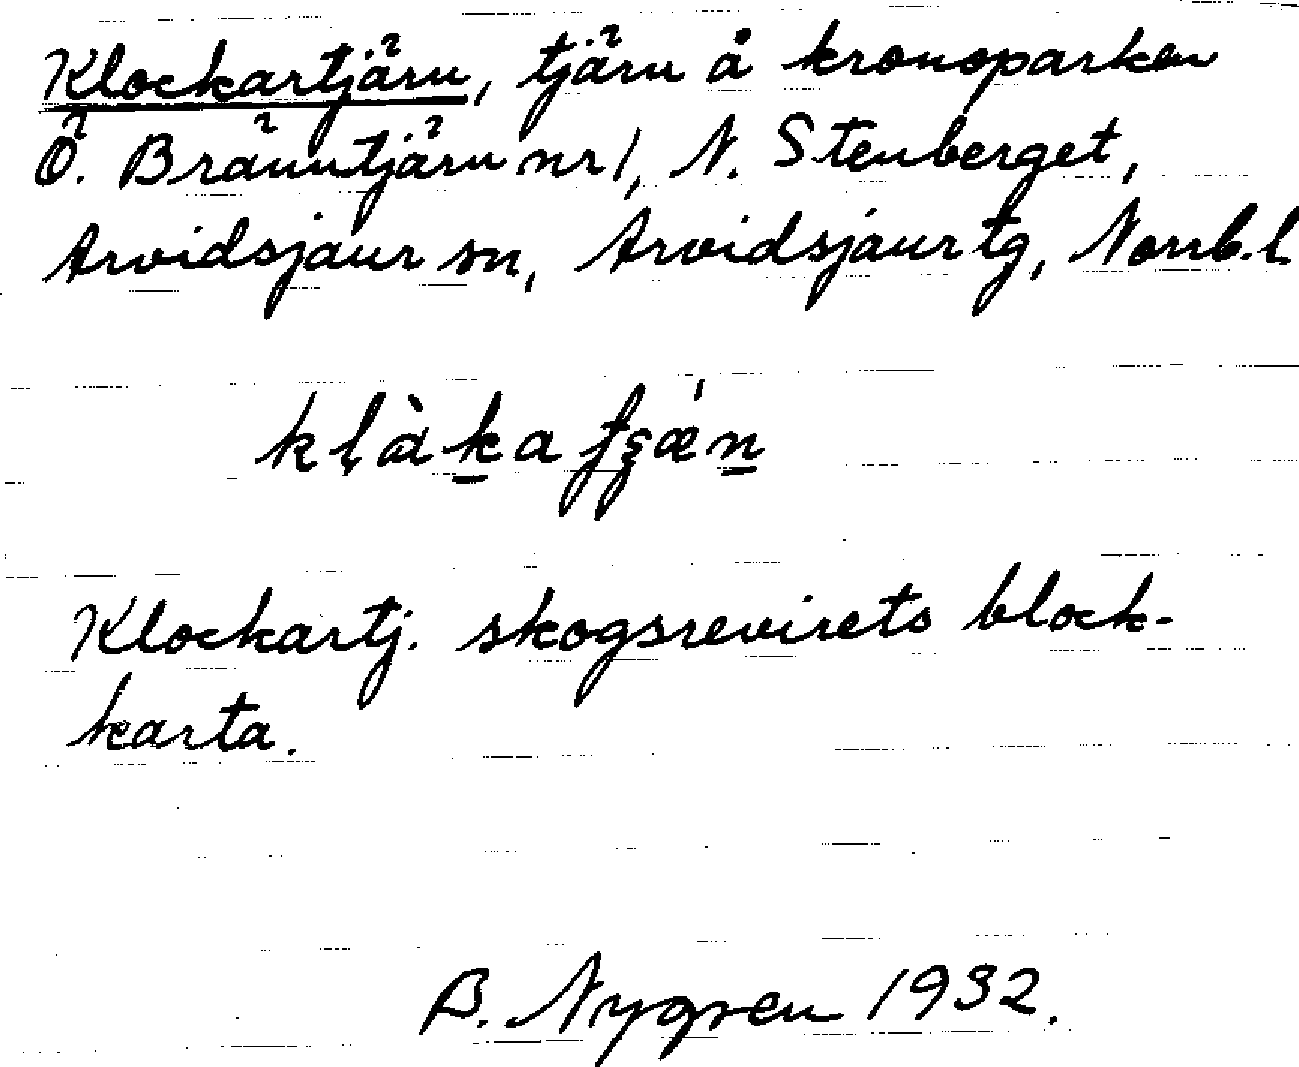 Klockartjärn, tjärn å kronoparken
Ö. Bränntjärn nr 1, N. Stenberget,
Arvidsjaur sn, Arvidsjaur tg, Norrb. l.
Klockartj. skogsrevirets block-
karta.
B. Nygren 1932.